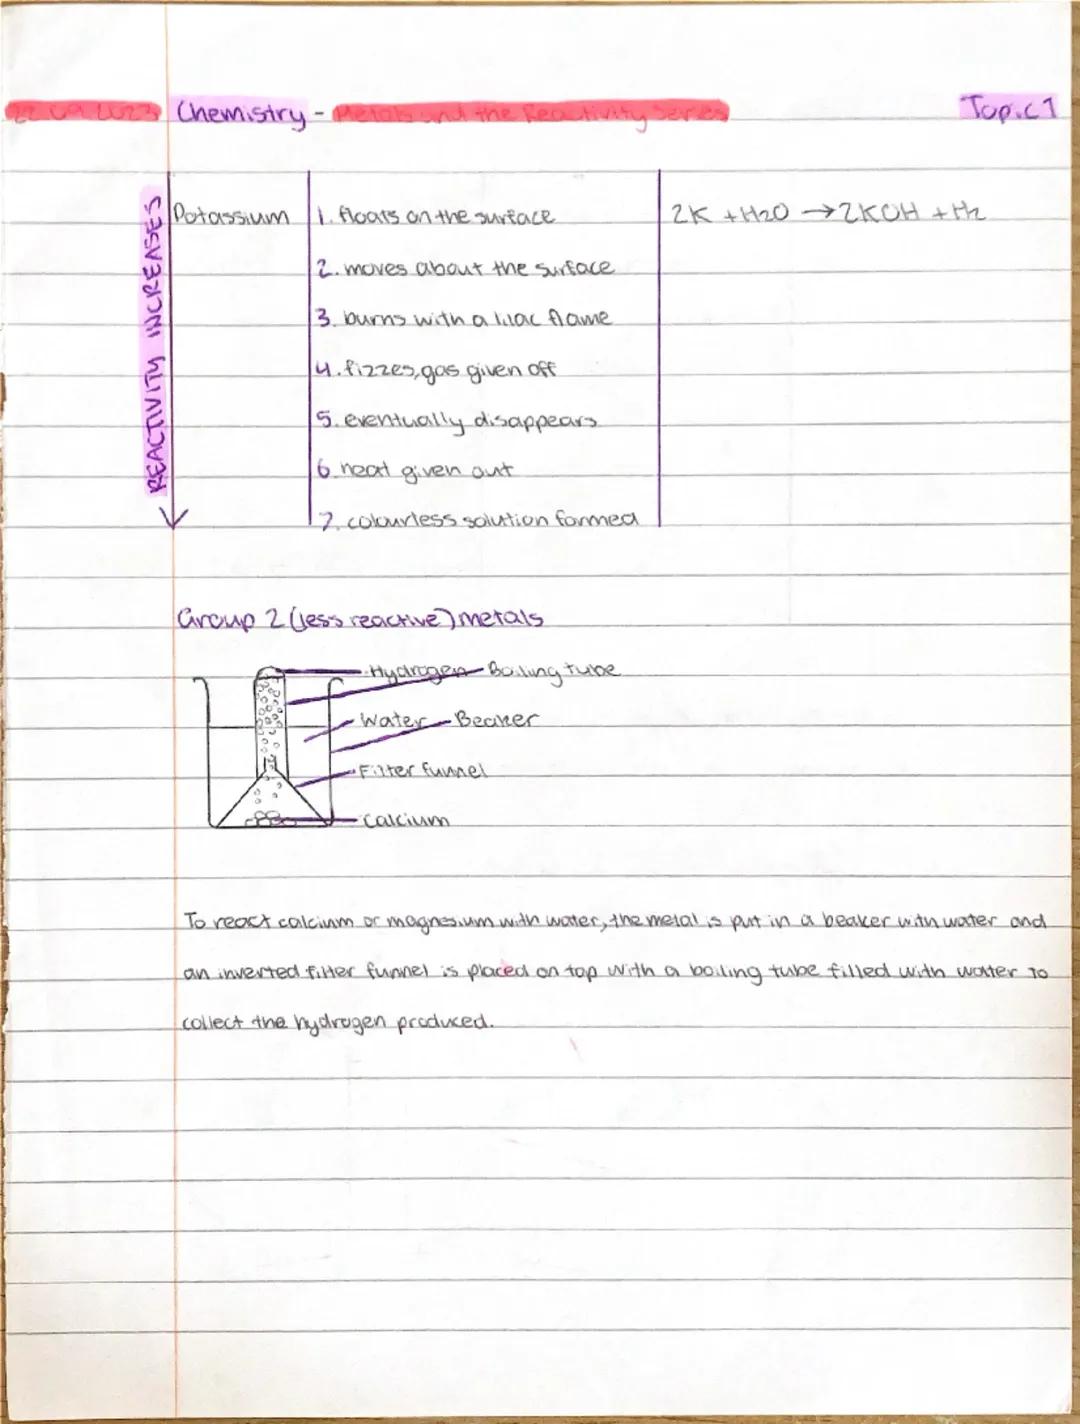 22.09.2023 Chemistry - Metals and the Reactivity Series Topic 1
REACTIVITY INCREASES
Potassium
1. floats on the surface
2. moves about the surface
3. burns with a lilac flame
4. fizzes, gas given off
5. eventually disappears
6. heat given out
7. colourless solution formed
2K + H2O → 2KOH + H2
Group 2 (less reactive) metals
Hydrogen Boiling tube
Water Beaker
Filter funnel
Calcium
To react calcium or magnesium with water, the metal is put in a beaker with water and
an inverted filter funnel is placed on top with a boiling tube filled with water to
collect the hydrogen produced.